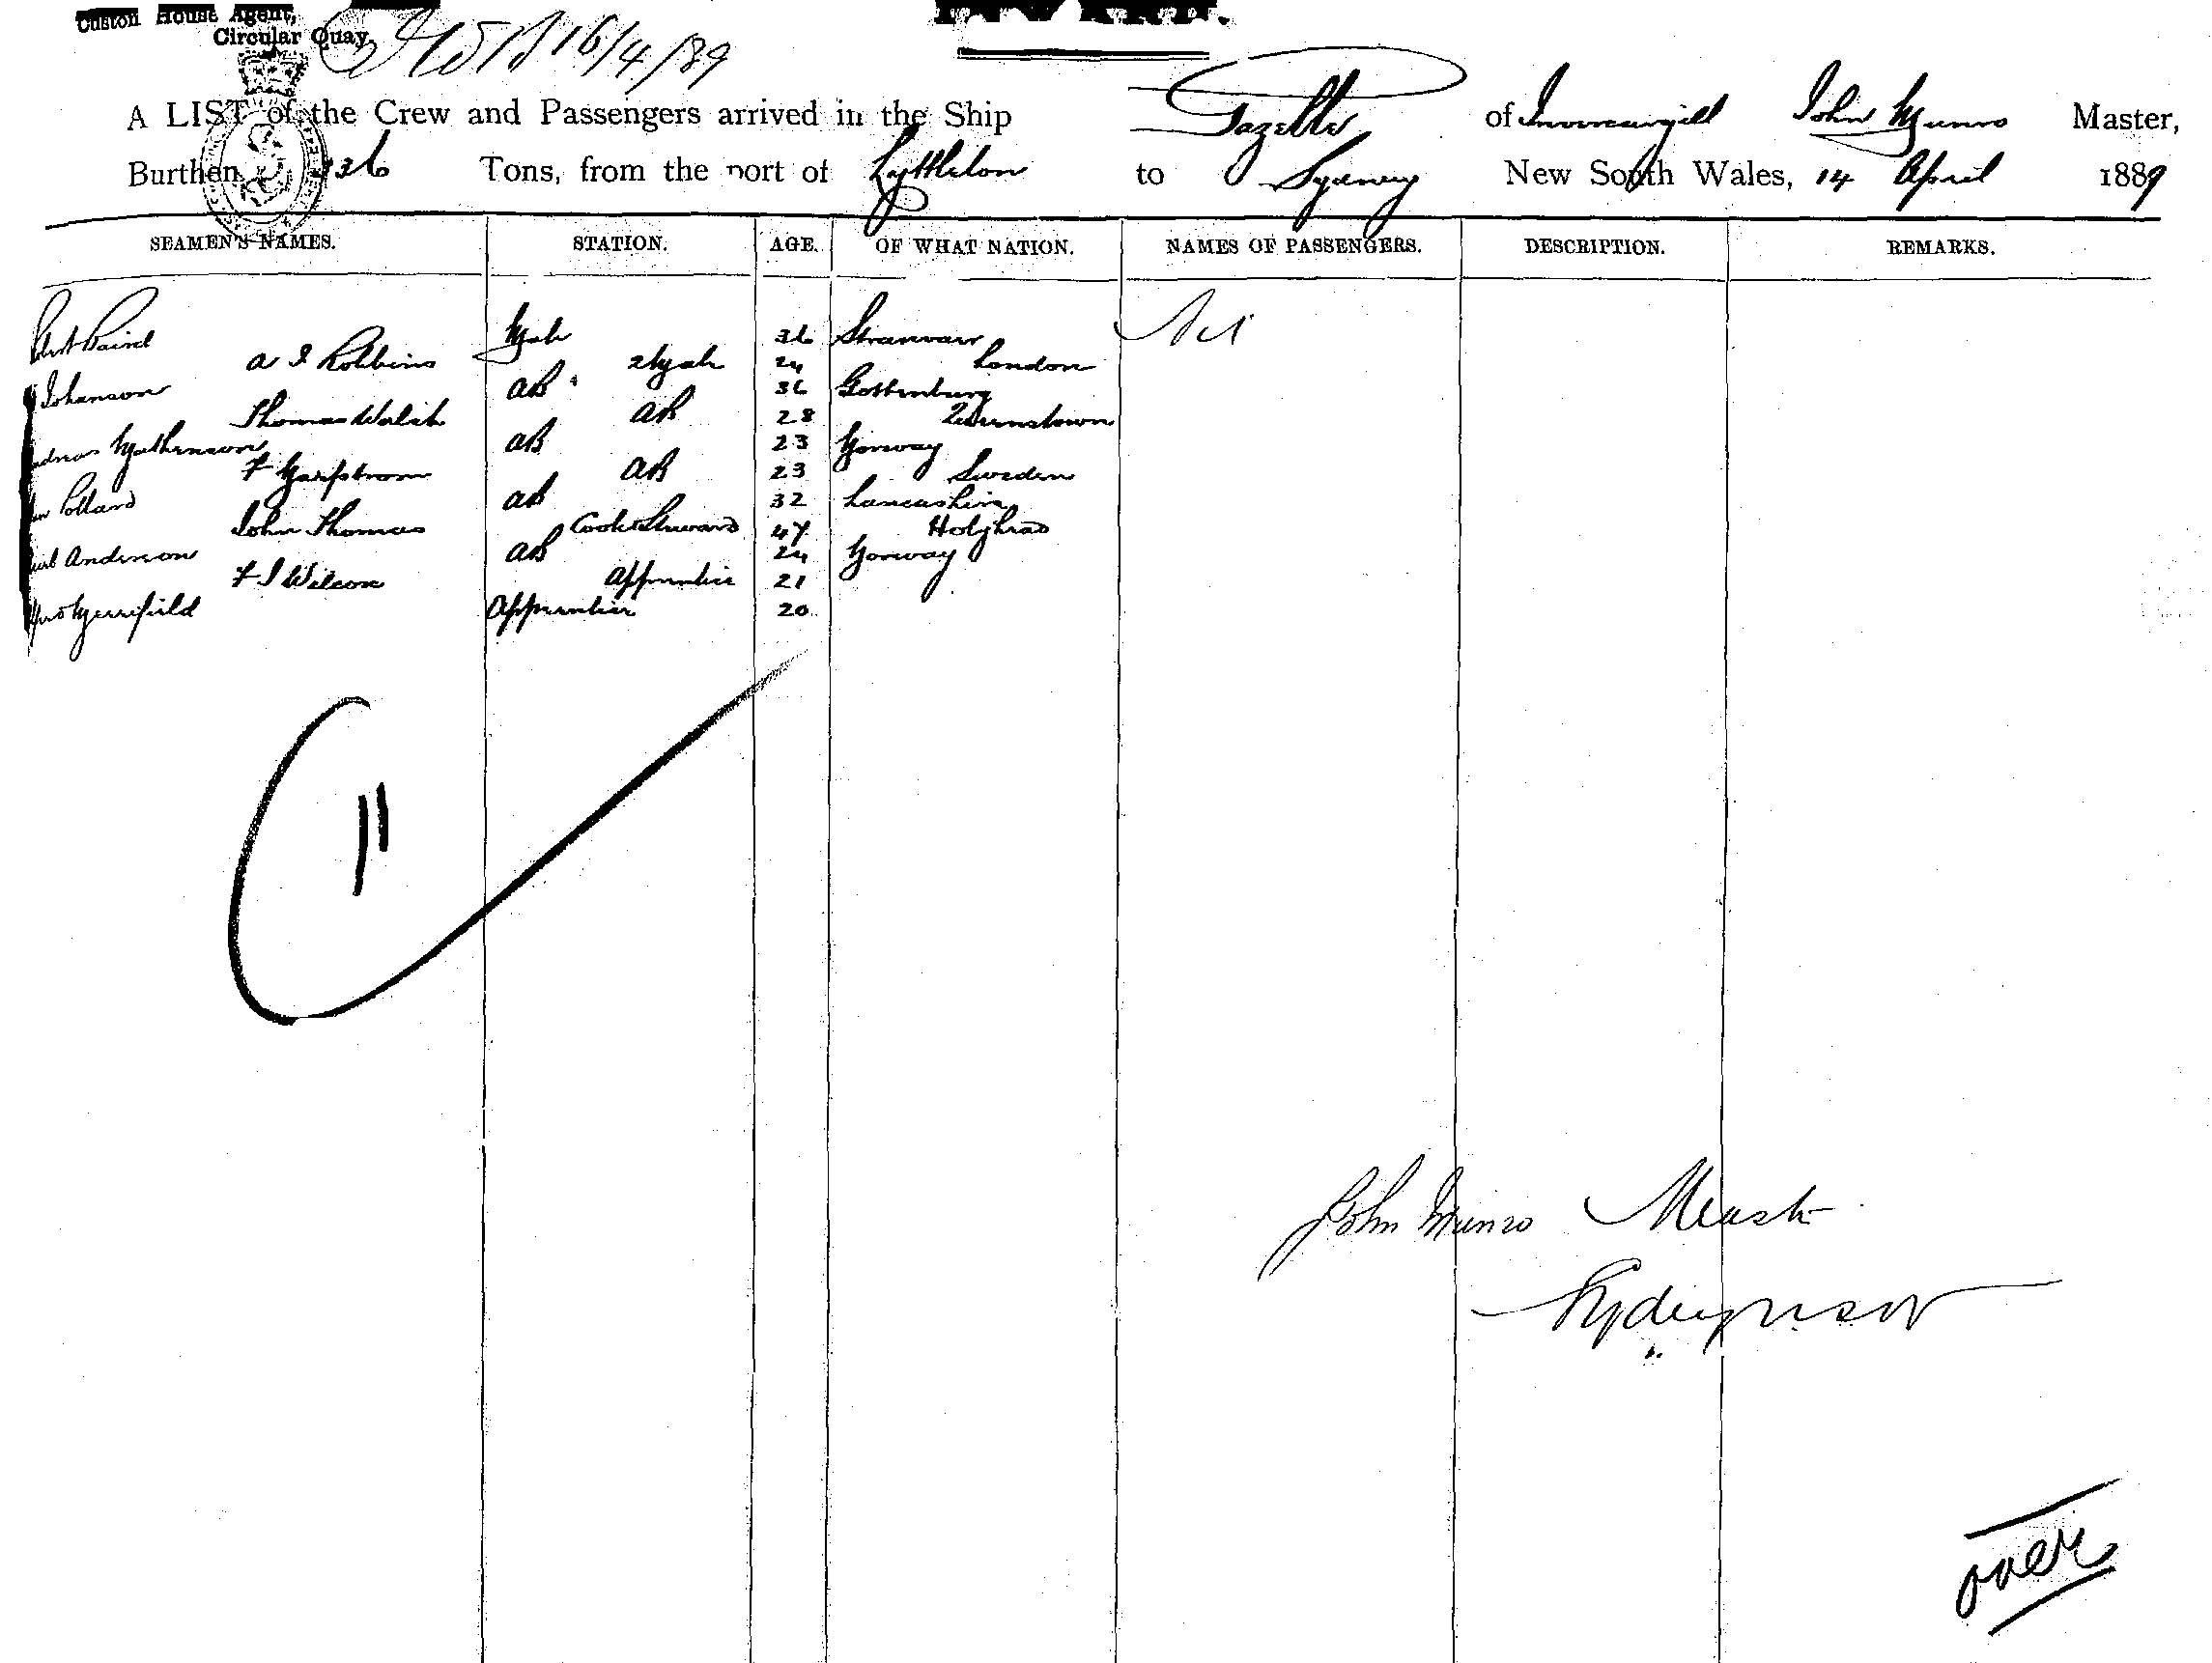 Custom House Agent,
Circular Quay,
16/4/89
A LIST of the Crew and Passengers arrived in the Ship Gazelle of Invercargill John Munro Master,
Burthen 336 Tons, from the port of Lyttleton to Sydney New South Wales, 14 April 1889
SEAMEN'S NAMES. STATION. AGE. OF WHAT NATION. NAMES OF PASSENGERS. DESCRIPTION. REMARKS.
Baird Mate 36 Stranraer Nil
A I Robbins 2 Mate 24 London
Johanson AB 36 Gottenburg
Thomas Walsh AB 28 Queenstown
Mathenson AB 23 Norway
F AB 23 Sweden
Pollard AB 32 Lancashire
John Thomas Cook & Steward 47 Holyhead
Anderson AB 24 Norway
F J Wilcox Apprentice 21
Merrifield Apprentice 20
11
John Munro Mast
Sydney NSW
over